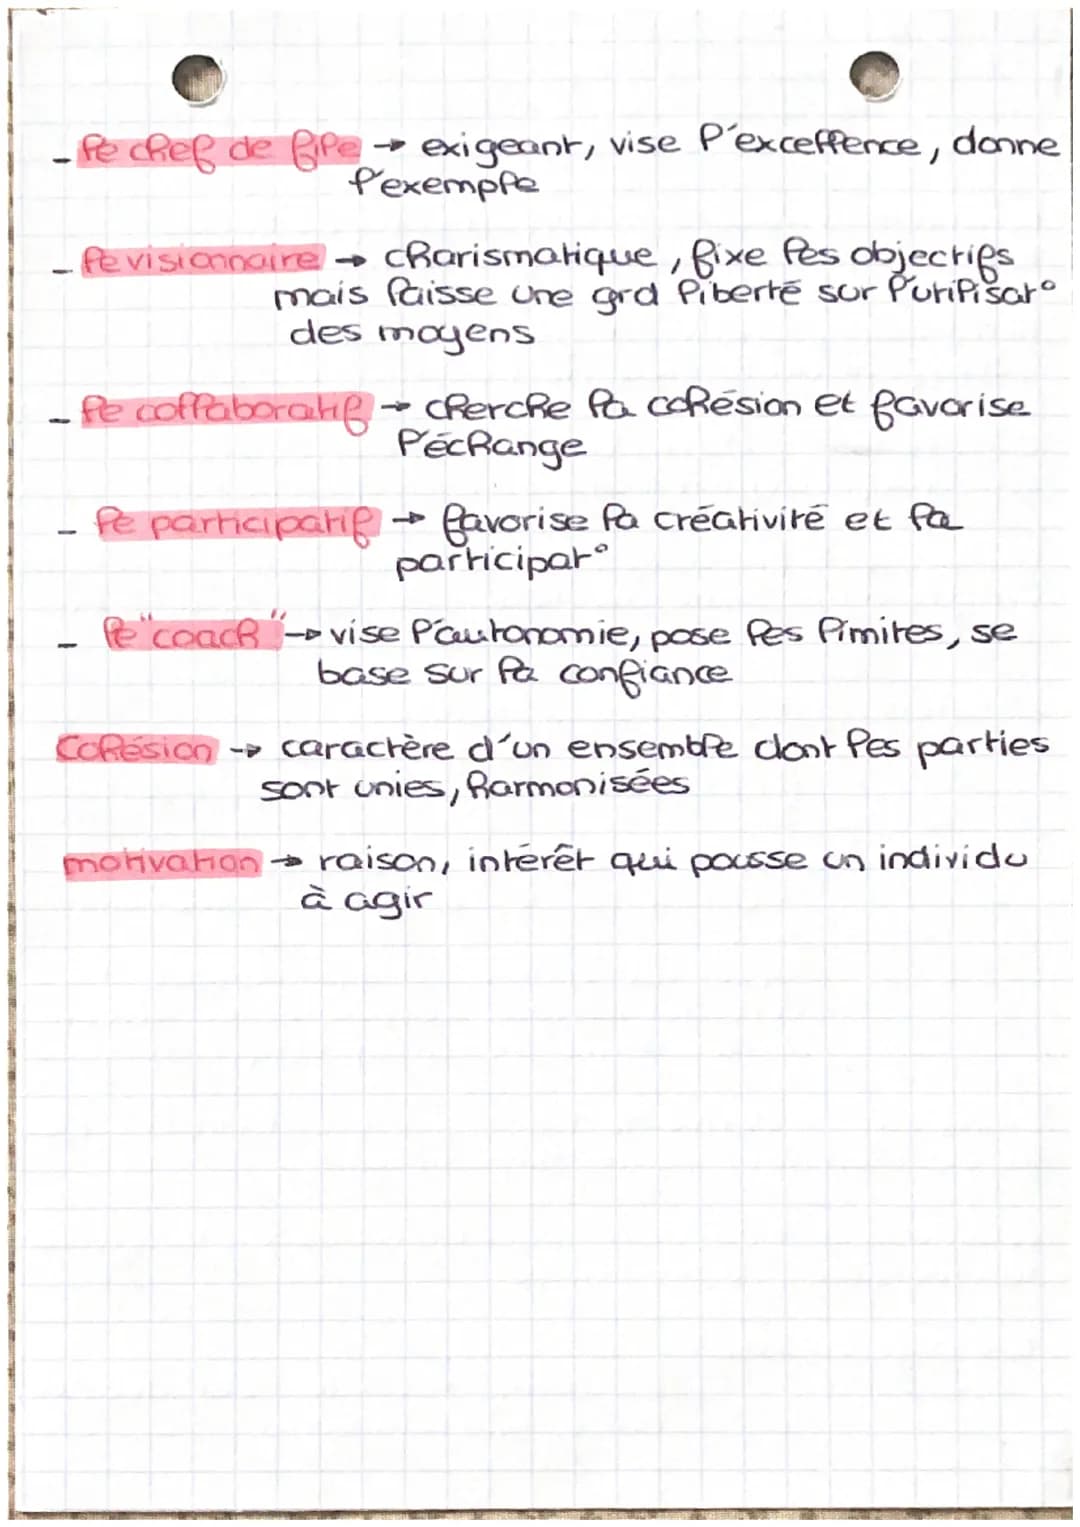 - le chef de file → exigeant, vise l'excellence, donne
l'exemple
- le visionnaire → charismatique, fixe les objectifs
mais laisse une grd liberté sur l'utilisat°
des moyens
- le collaboratif → cherche la cohésion et favorise
l'échange
- le participatif → favorise la créativité et la
participat°
- le "coach" → vise l'autonomie, pose les limites, se
base sur la confiance
Cohésion → caractère d'un ensemble dont les parties
sont unies, harmonisées
motivation → raison, intérêt qui pousse un individu
à agir